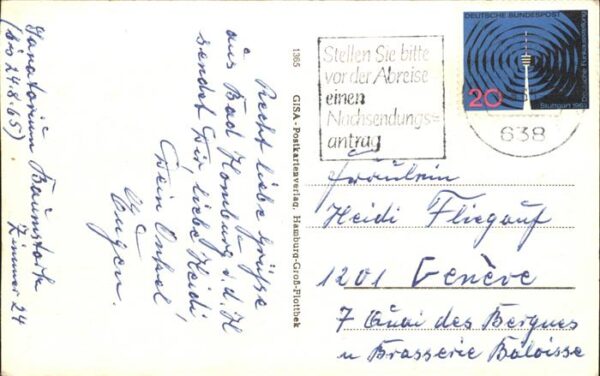 Sanatorium Baumstark
(bis 24.8.65) Zimmer 24
Recht liebe Grüsse
aus Bad Homburg v.d.H
sendet Dir, liebe Heidi
Dein Onkel
Eugen.
1365 GISA-Postkartenverlag, Hamburg-Groß-Flottbek
Stellen Sie bitte
vor der Abreise
einen
Nachsendungs=
antrag
DEUTSCHE BUNDESPOST
Deutsche Funkausstellung
Stuttgart 1965
20
638
Fräulein
Heidi Fliegauf
1201 Genève
7 Quai des Bergues
Brasserie Bâloisse